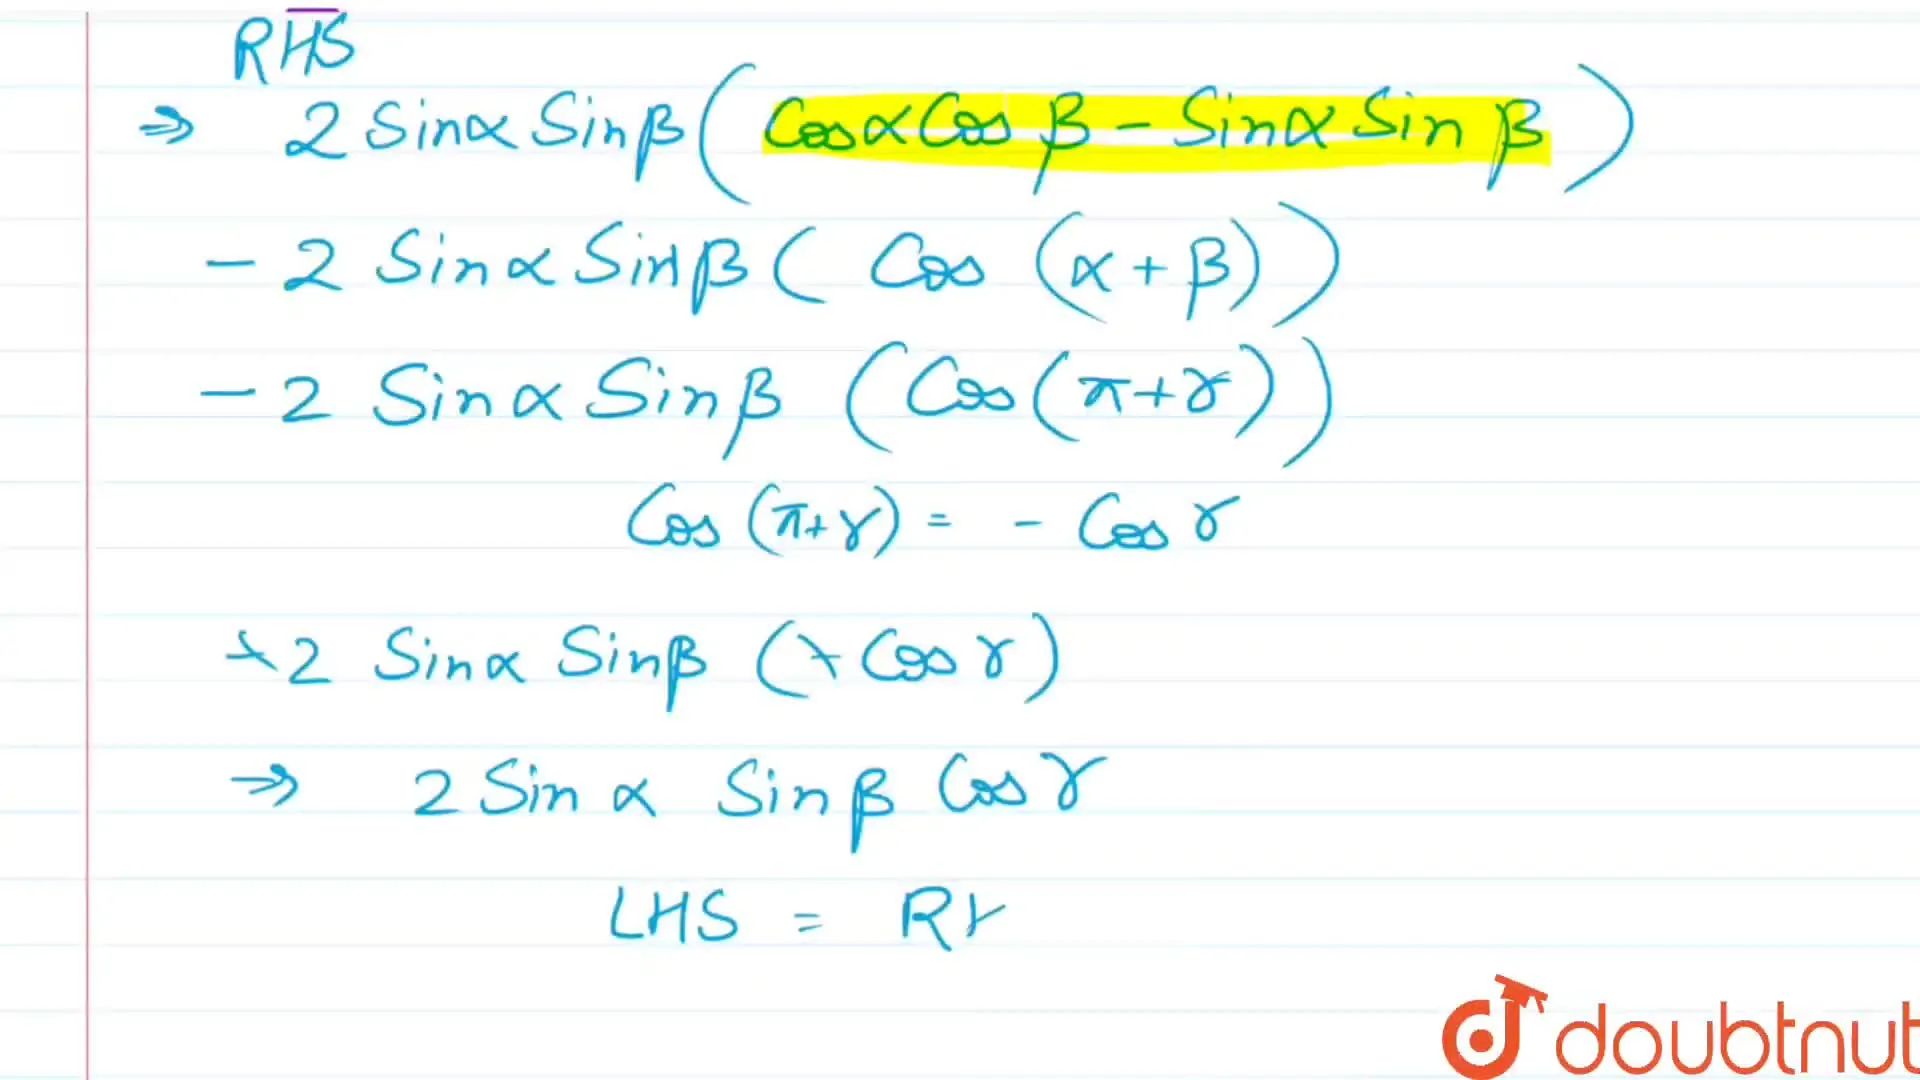 RHS
⇒ 2 Sinα Sinβ ( Cosα Cosβ - Sinα Sinβ )
- 2 Sinα Sinβ ( Cos (α + β) )
- 2 Sinα Sinβ ( Cos (π + γ) )
Cos (π + γ) = - Cos γ
+ 2 Sinα Sinβ ( + Cos γ )
⇒ 2 Sin α Sin β Cos γ
LHS = RH
doubtnut